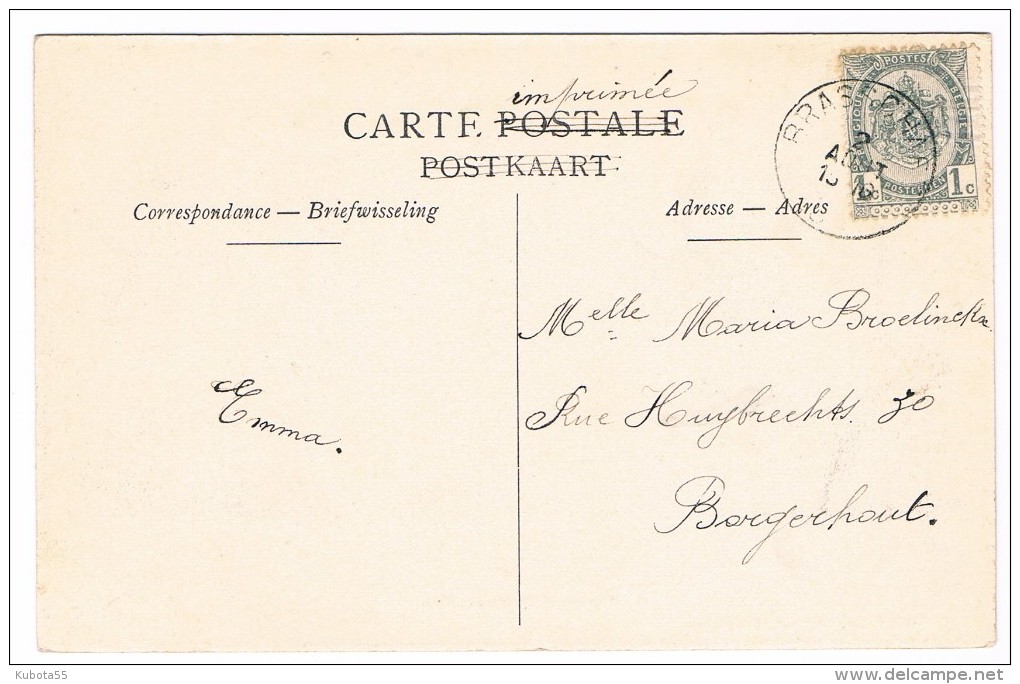 imprimée
CARTE POSTALE
POSTKAART
Correspondance — Briefwisseling
Adresse — Adres
BRASSCHAAT
2
AOUT
POSTES
BELGIQUE BELGIE
POSTERIJEN
1c 1c
Melle Maria Broelinckx
Rue Huybrechts. 30
Borgerhout.
Emma.
Kubota55
delcampe.net